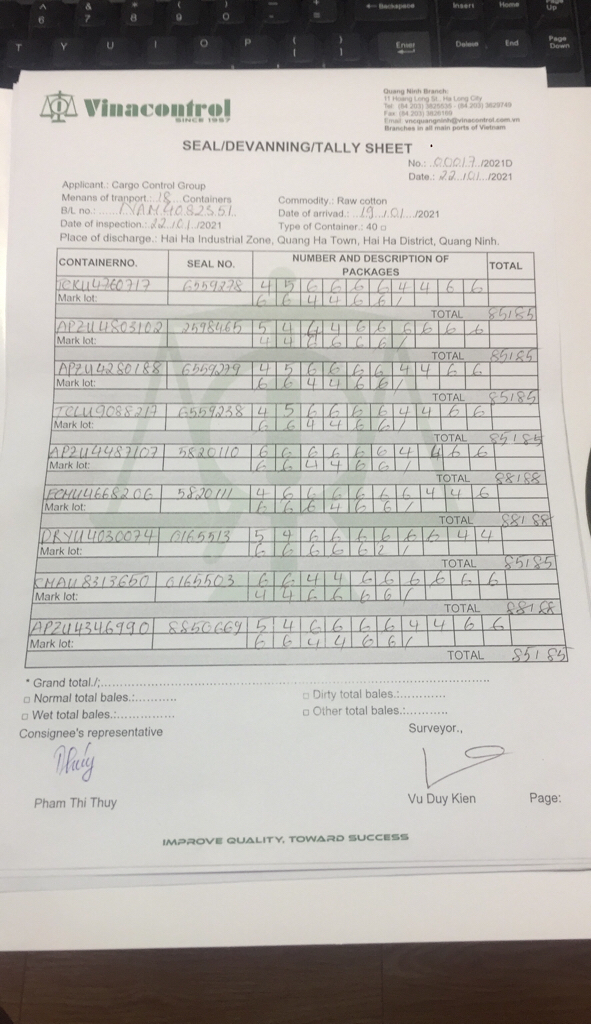 Vinacontrol
SINCE 1957
Quang Ninh Branch:
11 Hoang Long St., Ha Long City
Email: vncquangninh@vinacontrol.com.vn
Branches in all main ports of Vietnam
SEAL/DEVANNING/TALLY SHEET
No.: 00017 /2021D
Date.: 22 /01 /2021
Applicant.: Cargo Control Group
Menans of tranport.: 18 Containers
Commodity.: Raw cotton
B/L no.:
Date of arrivad.: 19 /01 /2021
Date of inspection.: 22 /01 /2021
Type of Container.: 40
Place of discharge.: Hai Ha Industrial Zone, Quang Ha Town, Hai Ha District, Quang Ninh.
CONTAINERNO. SEAL NO. NUMBER AND DESCRIPTION OF PACKAGES TOTAL
TCKU4760717 6559278 4 5 6 6 6 6 4 4 6 6
Mark lot: 6 6 4 4 6 6 /
TOTAL 85185
APZU4803102 2598465 5 4 4 4 6 6 6 6 6 6
Mark lot: 4 4 6 6 6 6 /
TOTAL 85185
APZU4280188 6559279 4 5 6 6 6 6 4 4 6 6
Mark lot: 6 6 4 4 6 6 /
TOTAL 85185
TCLU9088217 6559238 4 5 6 6 6 6 4 4 6 6
Mark lot: 6 6 4 4 6 6 /
TOTAL 85185
APZU4487107 5820110 6 6 6 6 6 6 4 4 6 6
Mark lot: 6 6 4 4 6 6 /
TOTAL 88188
FCMU4668206 5820111 4 6 6 6 6 6 6 4 4 6
Mark lot: 6 6 6 4 6 6 /
TOTAL 88188
DRYU4030074 0165513 5 4 6 6 6 6 6 6 4 4
Mark lot: 6 6 6 6 6 2 /
TOTAL 85185
CMAU8313650 0165503 6 6 4 4 6 6 6 6 6 6
Mark lot: 4 4 6 6 6 6 /
TOTAL 88188
APZU4346990 8850669 5 4 6 6 6 6 4 4 6 6
Mark lot: 6 6 4 4 6 6 /
TOTAL 85185
* Grand total./:
Normal total bales.:
Dirty total bales.:
Wet total bales.:
Other total bales.:
Consignee's representative
Surveyor.,
Pham Thi Thuy
Vu Duy Kien
Page:
IMPROVE QUALITY, TOWARD SUCCESS